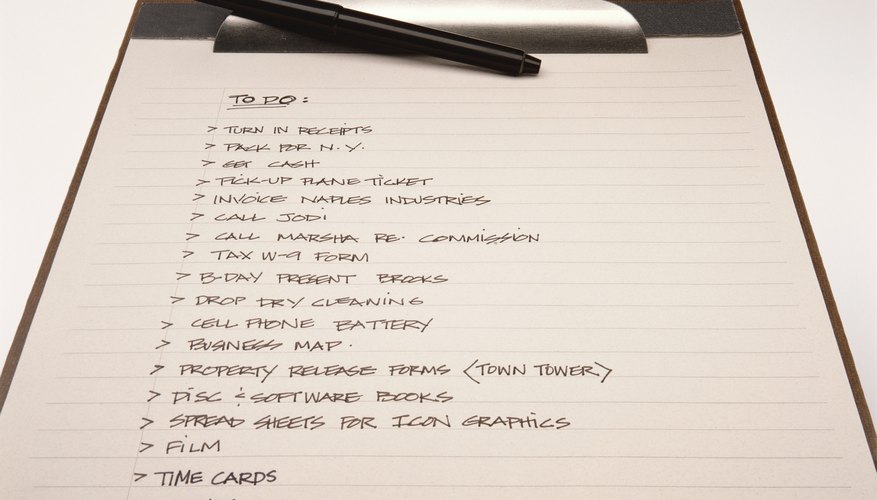 TO DO:
> TURN IN RECEIPTS
> PACK FOR N.Y.
> GET CASH
> PICK-UP PLANE TICKET
> INVOICE NAPLES INDUSTRIES
> CALL JODI
> CALL MARSHA RE. COMMISSION
> TAX W-9 FORM
> B-DAY PRESENT BROOKS
> DROP DRY CLEANING
> CELL PHONE BATTERY
> BUSINESS MAP.
> PROPERTY RELEASE FORMS <TOWN TOWER>
> DISC & SOFTWARE BOOKS
> SPREAD SHEETS FOR ICON GRAPHICS
> FILM
> TIME CARDS